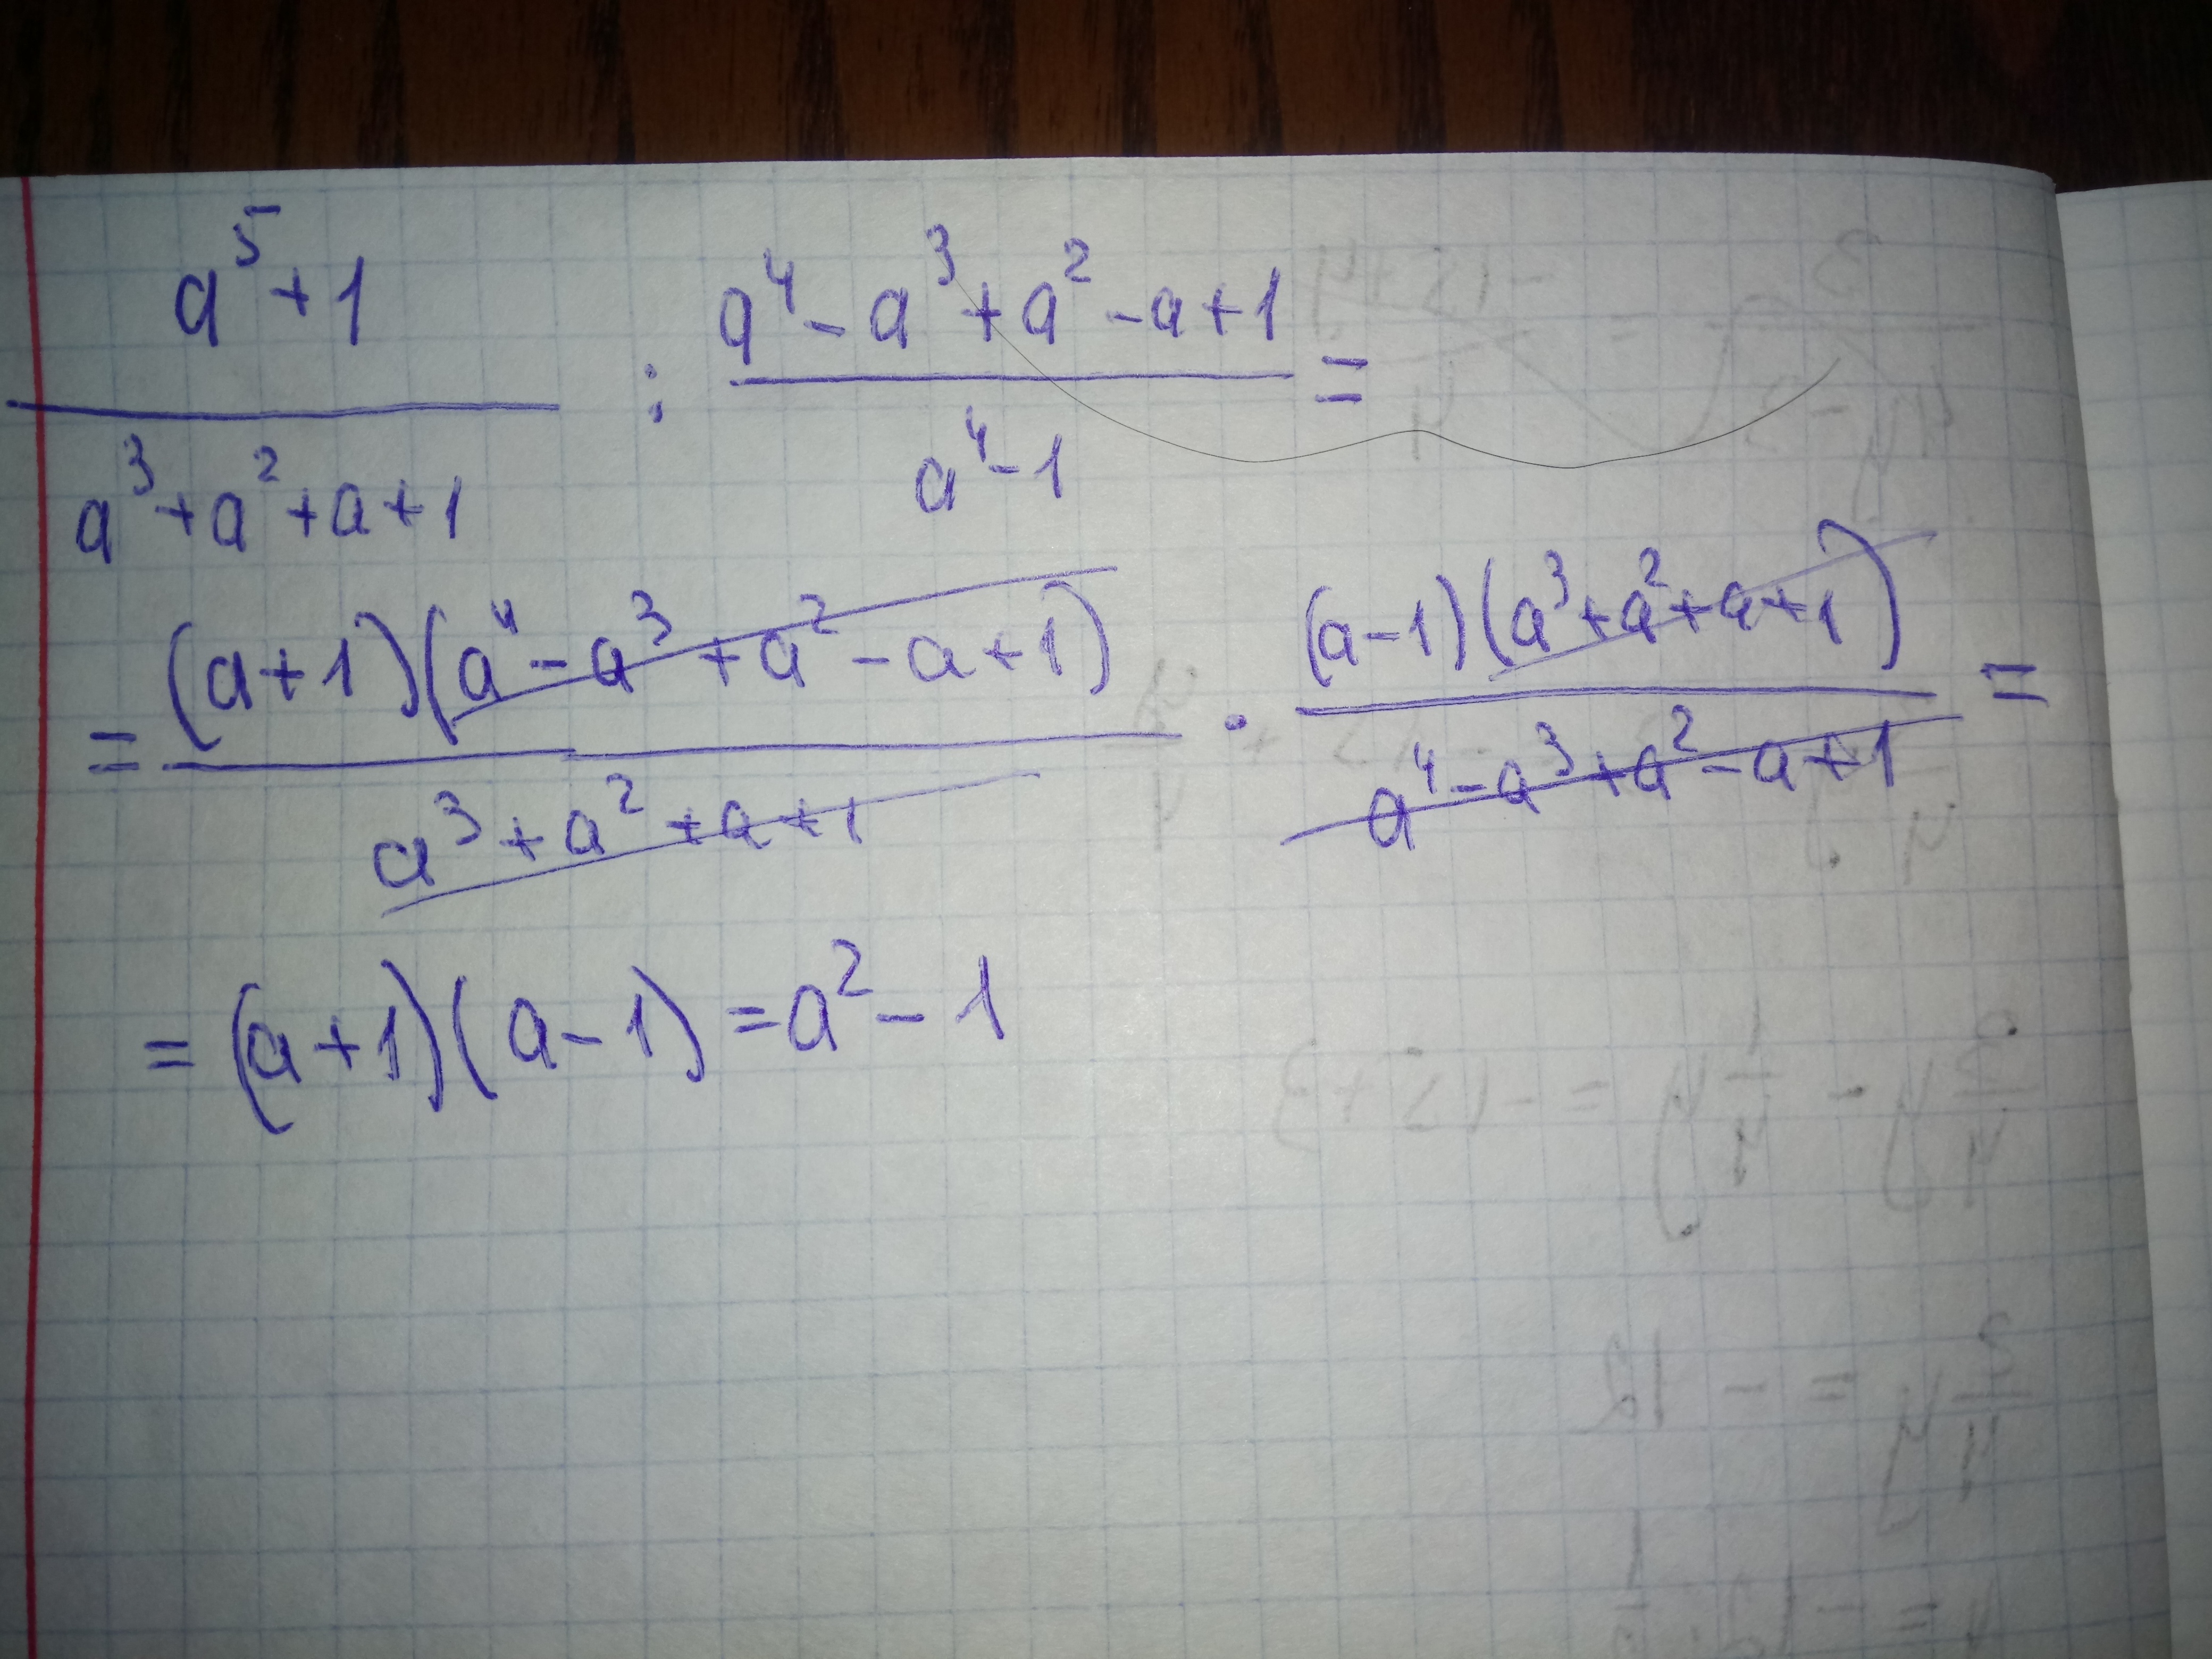 a⁵+1 / a³+a²+a+1 : a⁴-a³+a²-a+1 / a⁴-1 =
= (a+1)(a⁴-a³+a²-a+1) / a³+a²+a+1 · (a-1)(a³+a²+a+1) / a⁴-a³+a²-a+1 =
= (a+1)(a-1) = a²-1